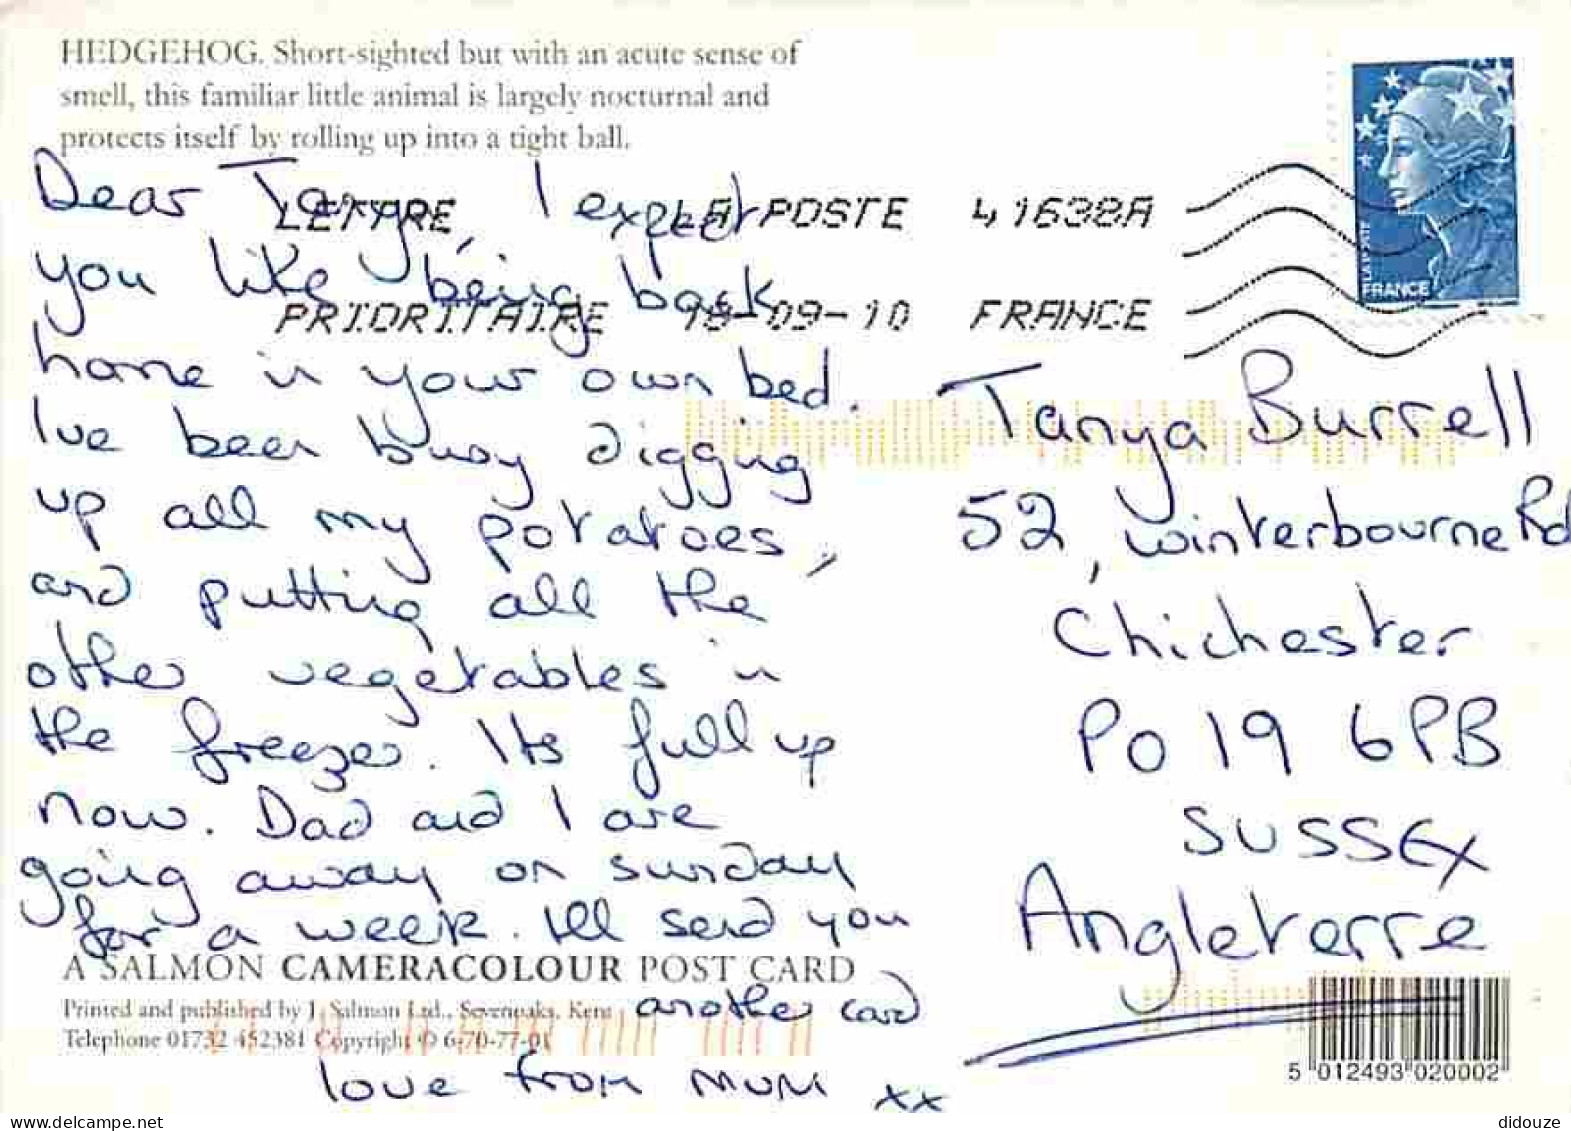 HEDGEHOG. Short-sighted but with an acute sense of
smell, this familiar little animal is largely nocturnal and
protects itself by rolling up into a tight ball.
LETTRE LA POSTE 41638A
PRIORITAIRE 18-09-10 FRANCE
FRANCE
Dear Tanya, I expect
you like being back
home in your own bed.
I've been busy digging
up all my potatoes,
and putting all the
other vegetables in
the freezer. Its full up
now. Dad and I are
going away on sunday
for a week. I'll send you
another card
love from mum xx
Tanya Burrell
52, Winterbourne Rd
Chichester
PO19 6PB
SUSSEX
Angleterre
A SALMON CAMERACOLOUR POST CARD
Printed and published by J. Salmon Ltd., Sevenoaks, Kent
Telephone 01732 452381 Copyright © 6-70-77-01
5 012493 020002
didouze